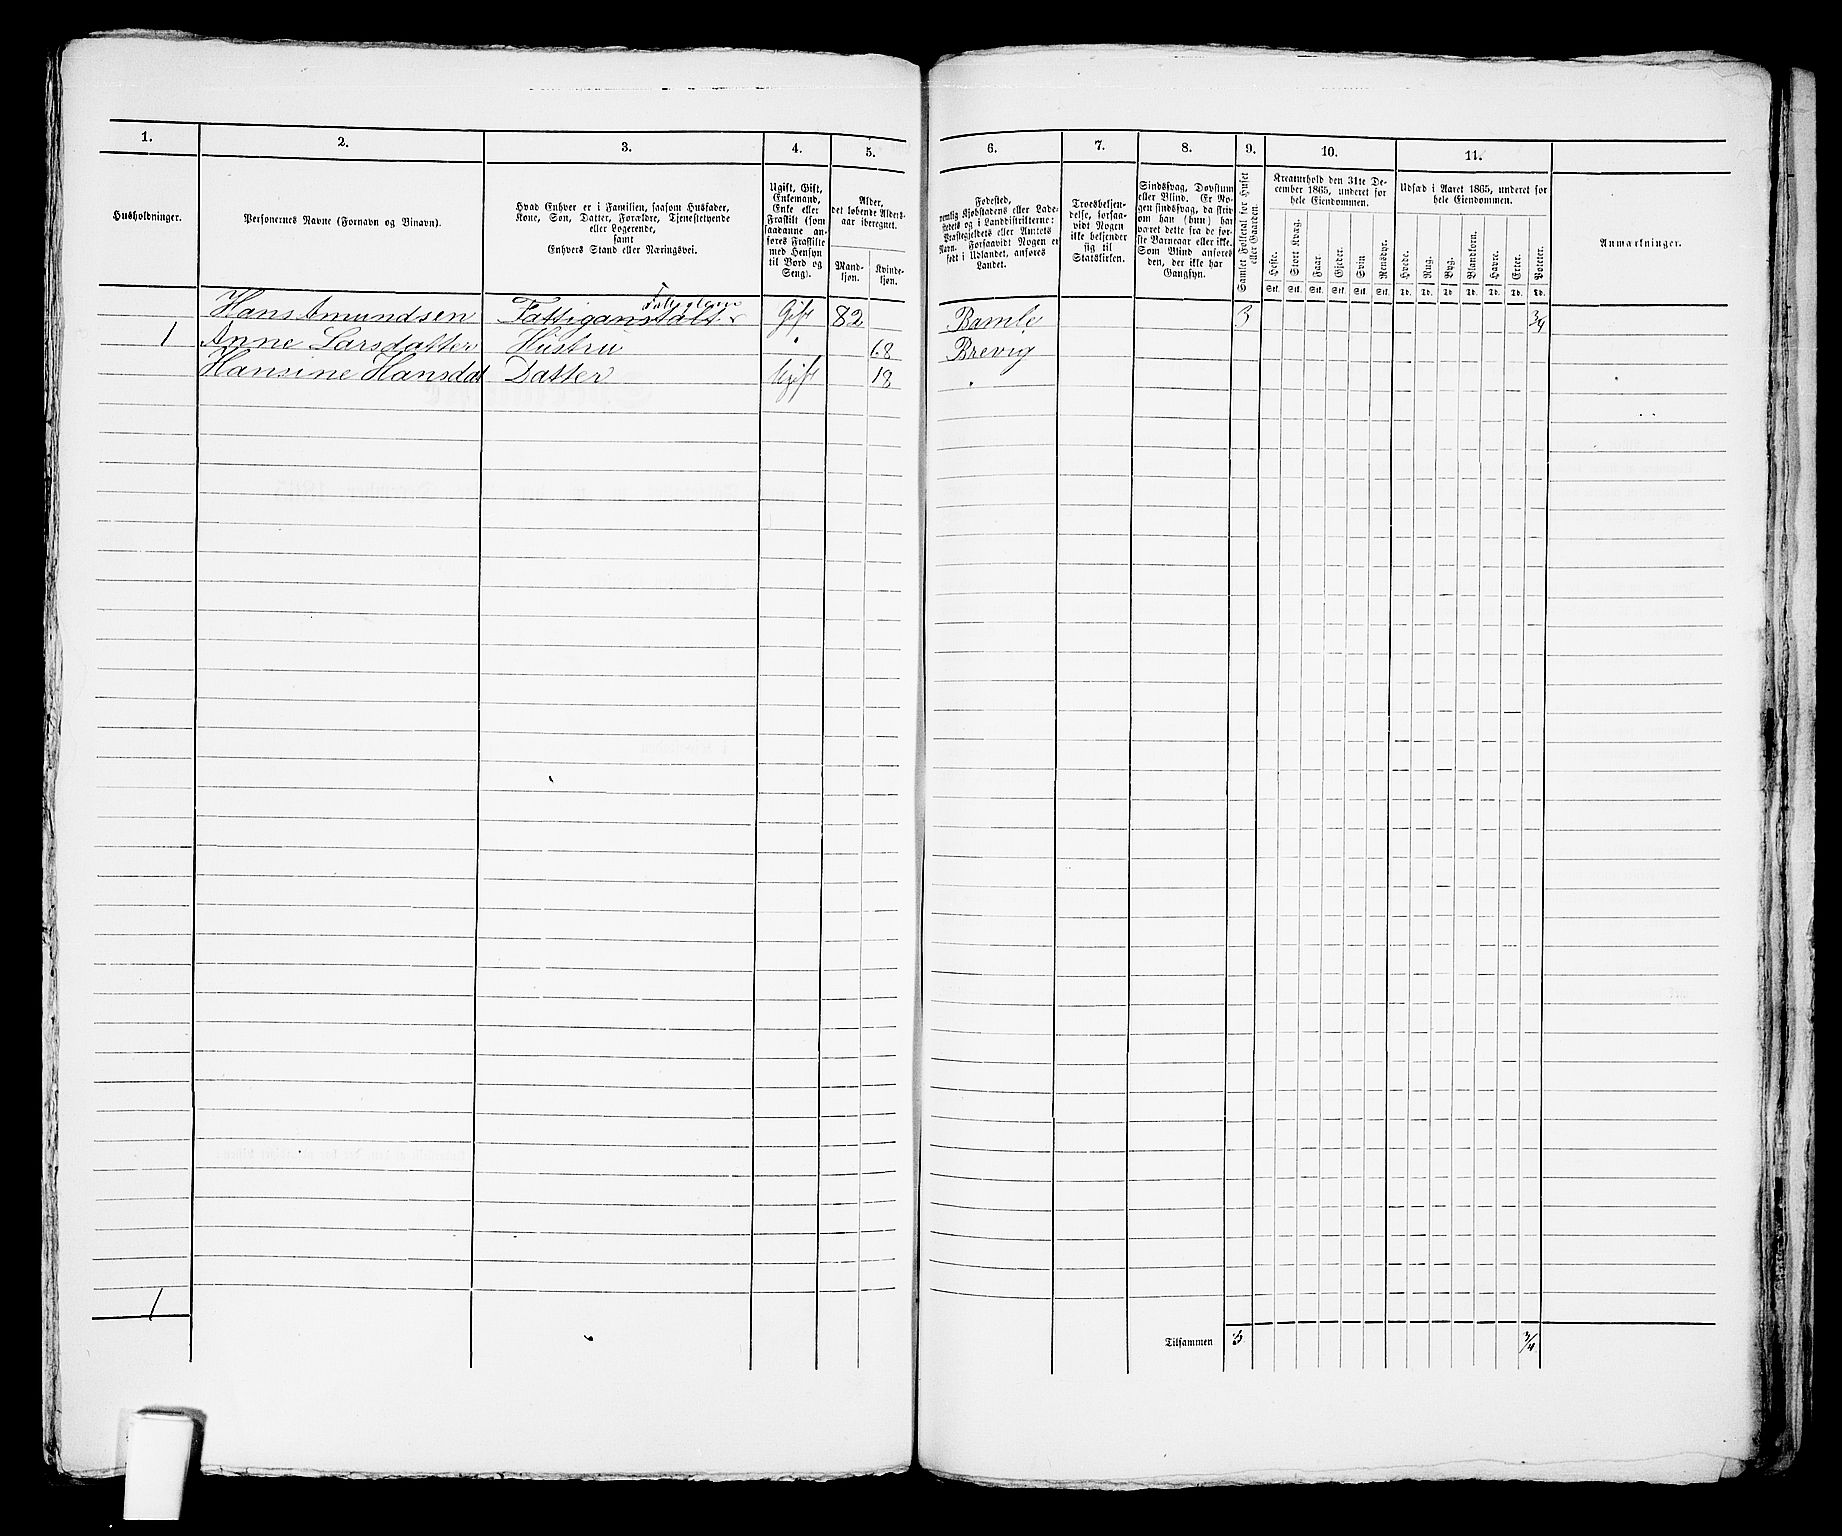 1.
Husholdninger.
2.
Personernes Navne (Fornavn og Binavn).
3.
Hvad Enhver er i Familien, saasom Husfader,
Kone, Søn, Datter, Forældre, Tjenestetyende
eller Logerende,
samt
Enhvers Stand eller Næringsvei.
4.
Ugift, Gift,
Enkemand,
Enke eller
Fraskilt (som
saadanne an-
føres Fraskilte
med Hensyn
til Bord og
Seng).
5.
Alder,
det løbende Alders-
aar iberegnet.
Mand-
kjøn.
Kvinde-
kjøn.
6.
Fødested,
nemlig Kjøbstadens eller Lade-
stedets og i Landdistrikterne:
Præstegjeldets eller Amtets
Navn. Forsaavidt Nogen er
født i Udlandet, anføres
Landet.
7.
Troesbekjen-
delse, forsaa-
vidt Nogen
ikke bekjender
sig til
Statskirken.
8.
Sindssvag, Døvstum
eller Blind. Er No-
gen sindssvag, da skriv
om han (hun) har
været dette fra de før-
ste Barneaar eller ikke.
Som Blind anføres
den, der ikke har
Gangsyn.
9.
Samlet Folketal for Huset
eller Gaarden.
10.
Kreaturhold den 31te De-
cember 1865, underet for
hele Eiendommen.
Heste.
Stort Kvæg.
Faar.
Gjeder.
Svin
Rensdyr.
Stk. Stk. Stk. Stk. Stk. Stk.
11.
Udsæd i Aaret 1865, underet for
hele Eiendommen.
Hvede.
Rug.
Byg.
Blandkorn.
Havre.
Erter.
Poteter.
Td. Td. Td. Td. Td. Td. Td.
Anmærkninger.
Hans Amundsen Fattiganstalt Gift 82 Bamle 3 3/4
1 Anne Larsdatter Hustru " 68 Brevig
Hansine Hansdat Datter Ugift 18 "
1
Tilsammen 3 3/4